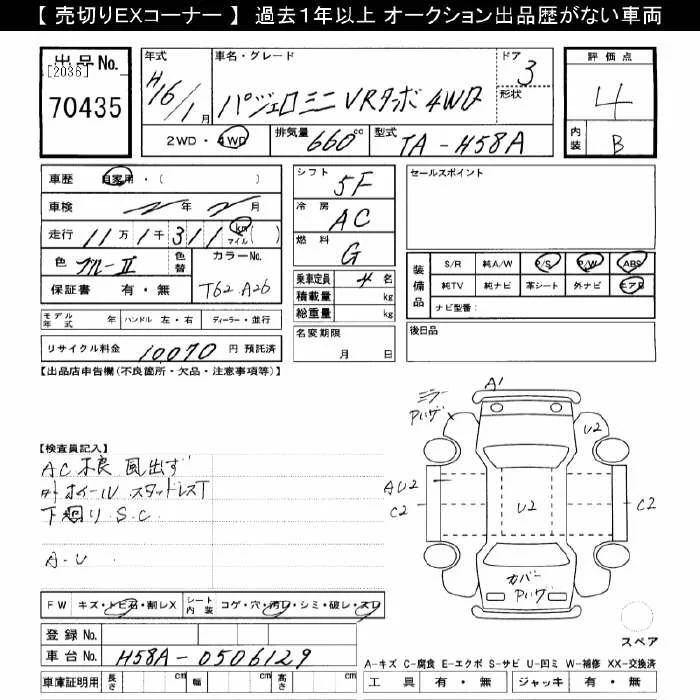 【 売切りEXコーナー 】 過去１年以上 オークション出品歴がない車両
出品No.
[2036]
70435
年式
H16/1月
車名・グレード
パジェロミニ VRターボ 4WD
ドア
3
形状
評価点
4
内装
B
2WD・4WD
排気量
660cc
型式
TA-H58A
車歴
自家用・( )
車検
年 月
走行
11万1千311
km
マイル( )
色
ブルーII
色替
カラーNo.
T62.A26
保証書 有・無
シフト
5F
冷房
AC
燃料
G
乗車定員
4名
積載量
kg
総重量
kg
セールスポイント
装備品
S/R 純A/W P/S P/W ABS
純TV 純ナビ 革シート 外ナビ エアB
ナビ型番：
モデル年式
年
ハンドル 左・右
ディーラー・並行
名変期限
月 日
後日品
リサイクル料金
10070
円 預託済
【出品店申告欄(不良箇所・欠品・注意事項等)】
A1
ミラー
PハゲU2
【検査員記入】
AC不良 風出ず
外ホイール スタッドレスT
下廻り S.C
A-U
AU2
C2
U2
C2
カバー
Pハゲ
FW
キズ・トビ石・割レX
シート内装
コゲ・穴・汚レ・シミ・破レ・スレ
スペア
登録No.
車台No.
H58A-0506129
A-キズ C-腐食 E-エクボ S-サビ U-凹ミ W-補修 XX-交換済
車庫証明用
長さ
cm
幅
cm
高さ
cm
工具 有・無
ジャッキ 有・無